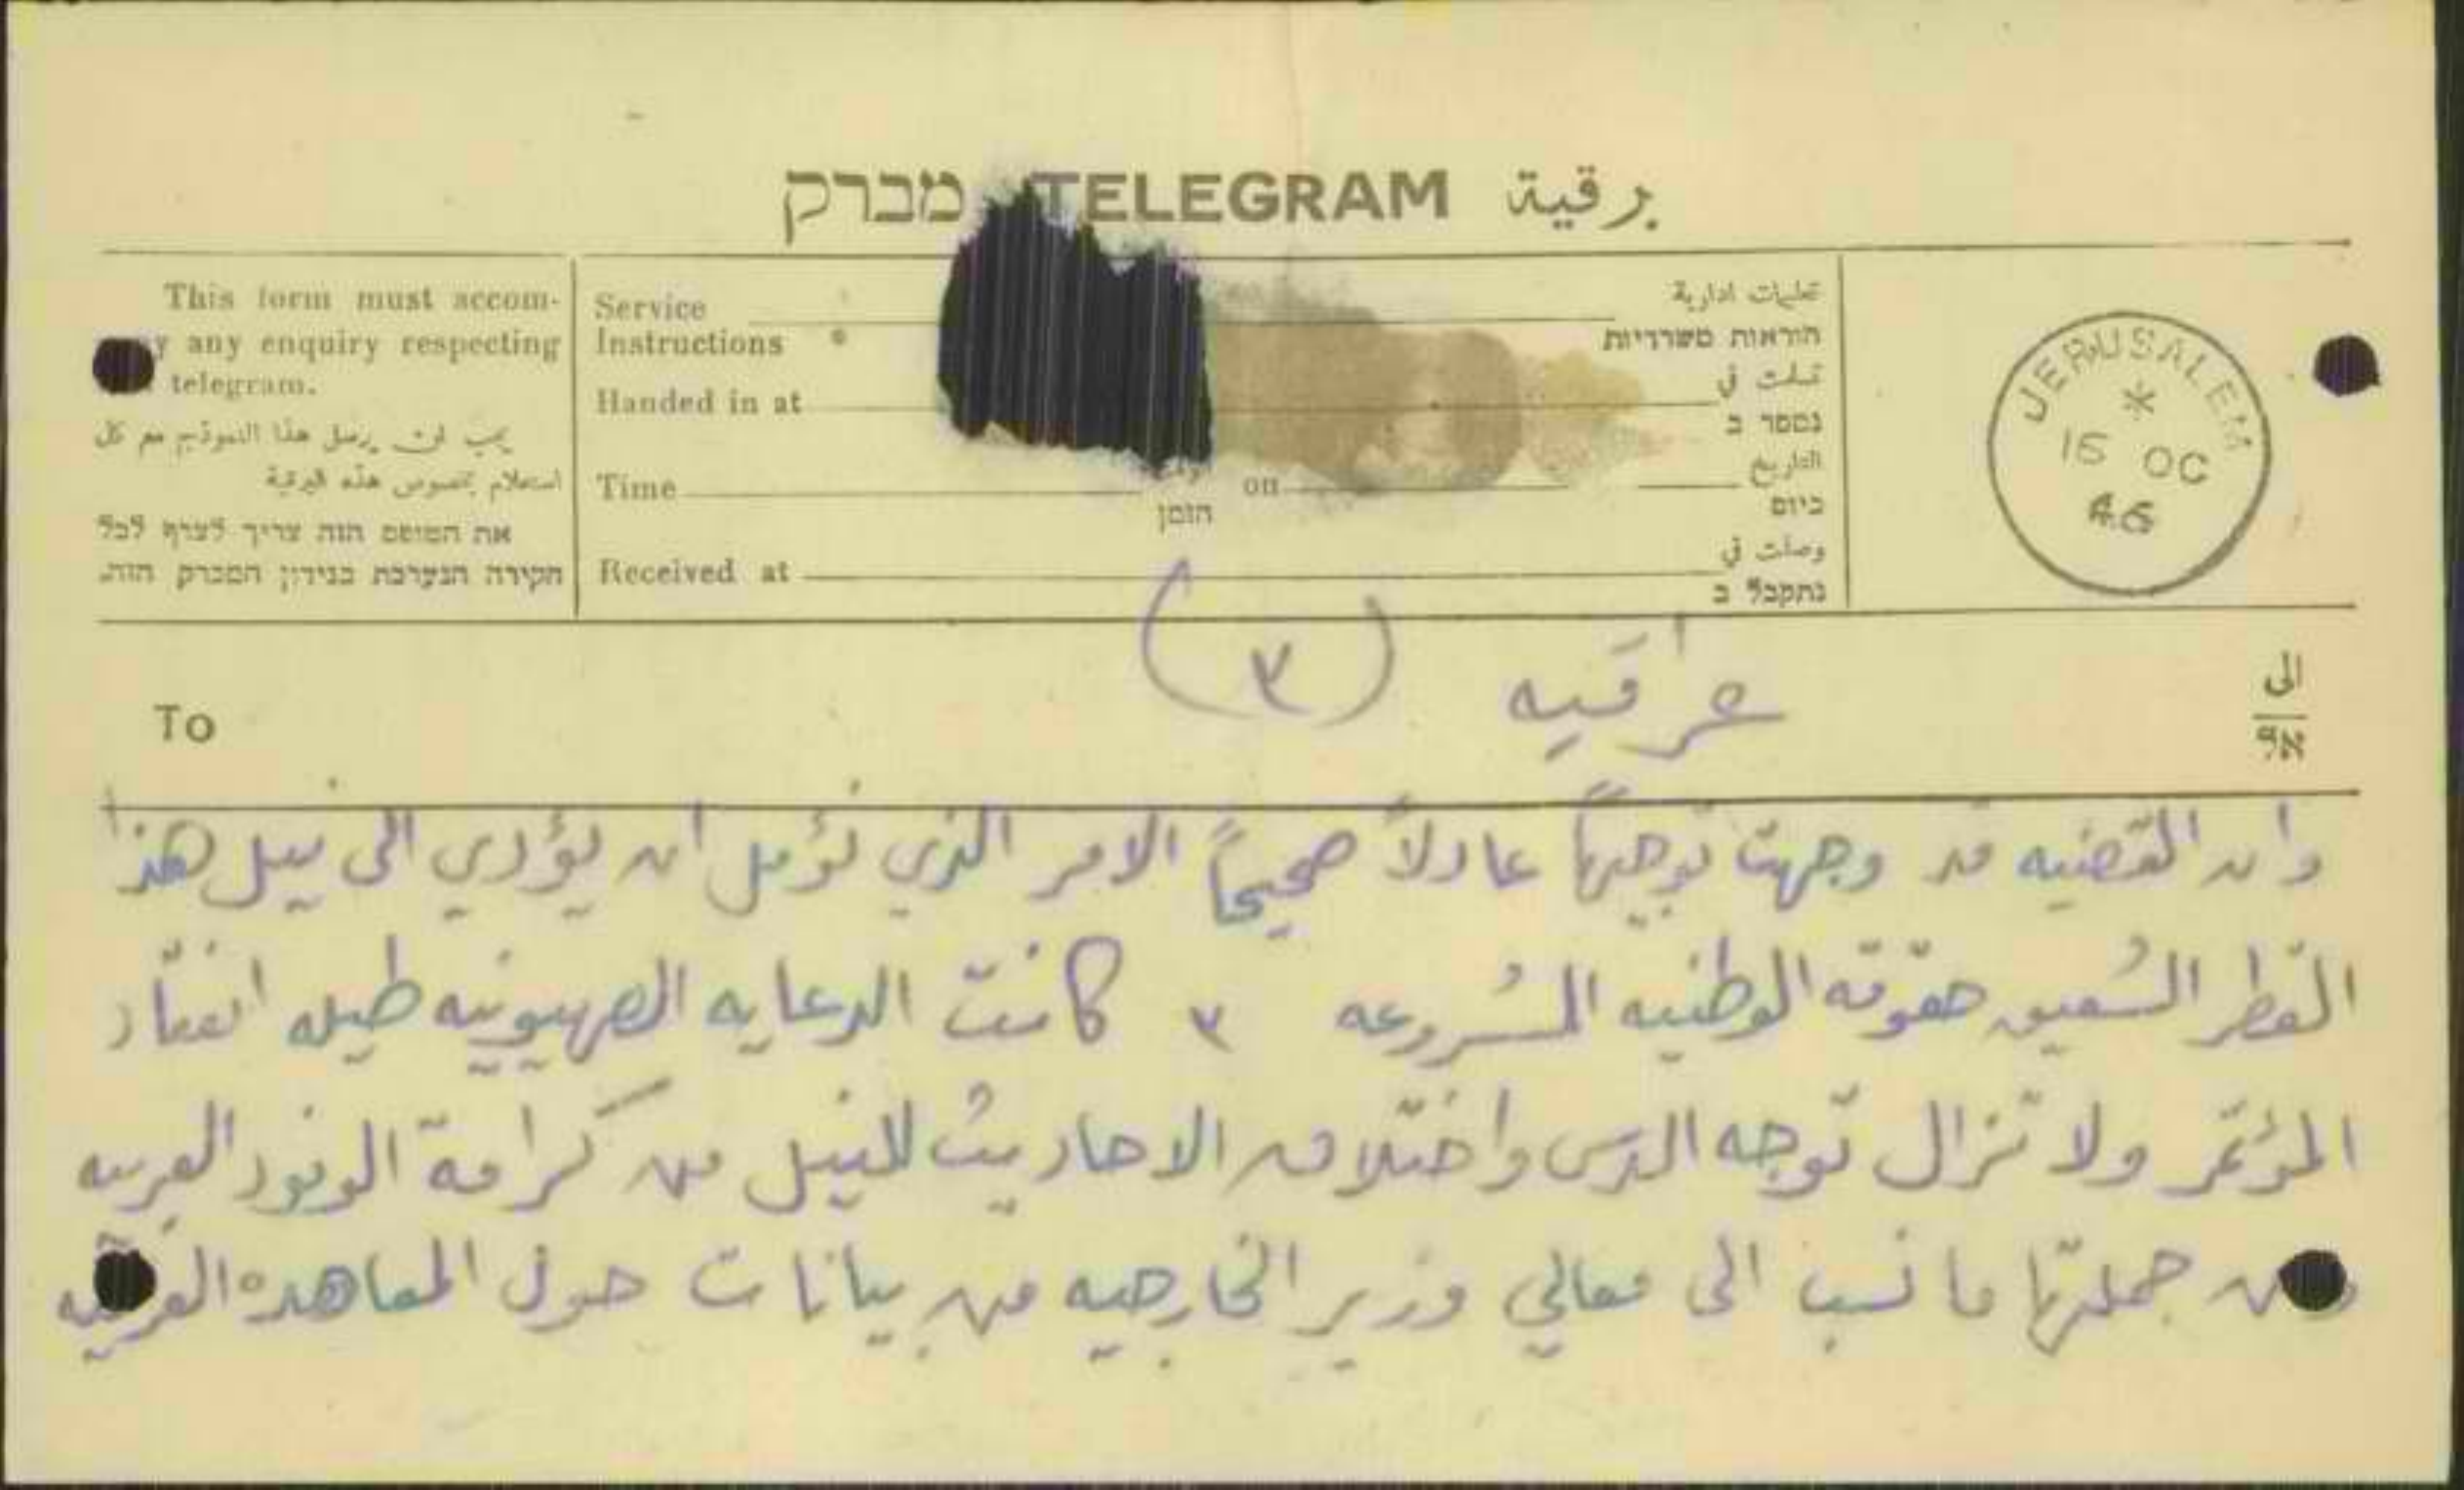 מברק TELEGRAM برقية
This form must accom-
y any enquiry respecting
telegram.
يجب ان يرسل هذا النموذج مع كل
استعلام بخصوص هذه البرقية
את הטופס הזה צריך לצרף לכל
חקירה הנערכת בנידון המברק הזה.
Service
Instructions
تعليمات ادارية
הוראות משרדיות
Handed in at
تسلمت في
נמסר ב
Time
הזמן
on
التاريخ
ביום
Received at
وصلت في
נתקבל ב
JERUSALEM
*
15 OC
46
To
عراقيه (٣)
الى
אל
وان القضيه قد وجهت توجيهاً عادلاً صحيحاً الامر الذي نؤمل ان يؤدي الى نيل هذا
القطر الشقيق حقوقه الوطنيه المشروعه ٣ كانت الدعايه الصهيونيه طيله انعقاد
المؤتمر ولا تزال توجه الدس واختلاق الاحاديث للنيل من كرامة الوفود العربيه
من جملتها ما نسب الى معالي وزير الخارجيه من بيانات حول المعاهده